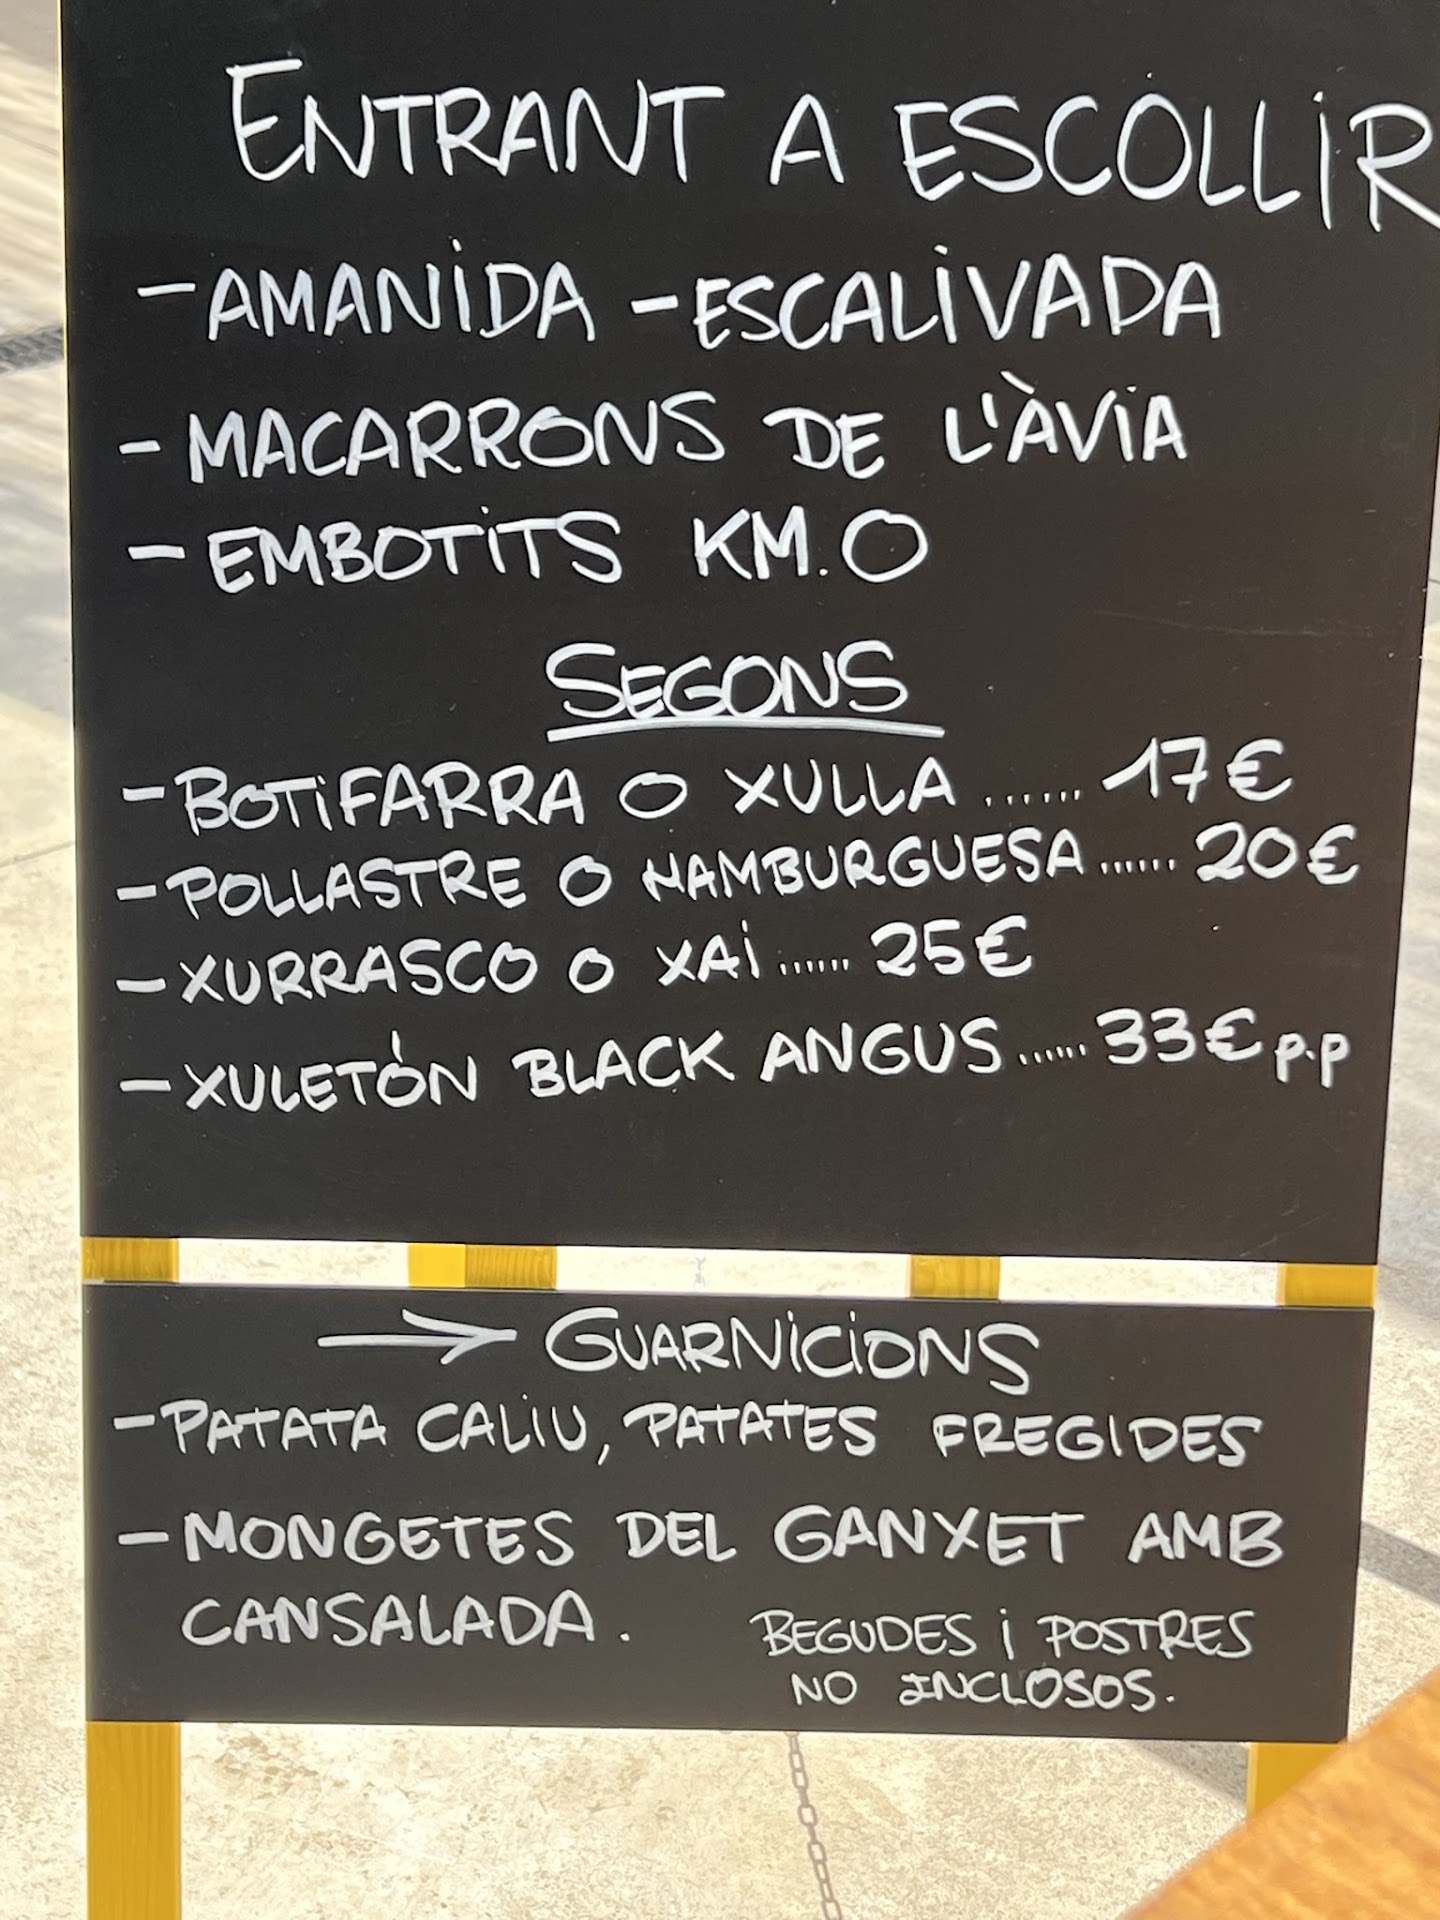 ENTRANT A ESCOLLIR
- AMANIDA - ESCALIVADA
- MACARRONS DE L'ÀVIA
- EMBOTITS KM.O
SEGONS
- BOTIFARRA O XULLA ...... 17€
- POLLASTRE O HAMBURGUESA ...... 20€
- XURRASCO O XAI ...... 25€
- XULETÓN BLACK ANGUS ...... 33€ p.p
→ GUARNICIONS
- PATATA CALIU, PATATES FREGIDES
- MONGETES DEL GANXET AMB
CANSALADA.
BEGUDES i POSTRES
NO INCLOSOS.